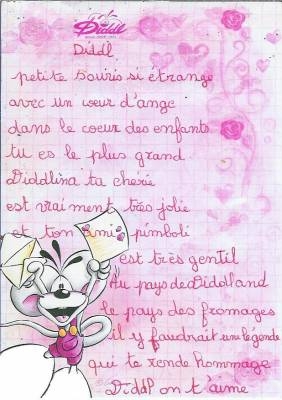 Diddl
Diddl
petite souris si étrange
avec un coeur d'ange
dans le coeur des enfants
tu es le plus grand
Diddlina ta chérie
est vraiment très jolie
et ton ami pimboli
est très gentil
Au pays de Diddland
le pays des fromages
il y faudrait une légende
qui te rende hommage
Diddl on t'aime